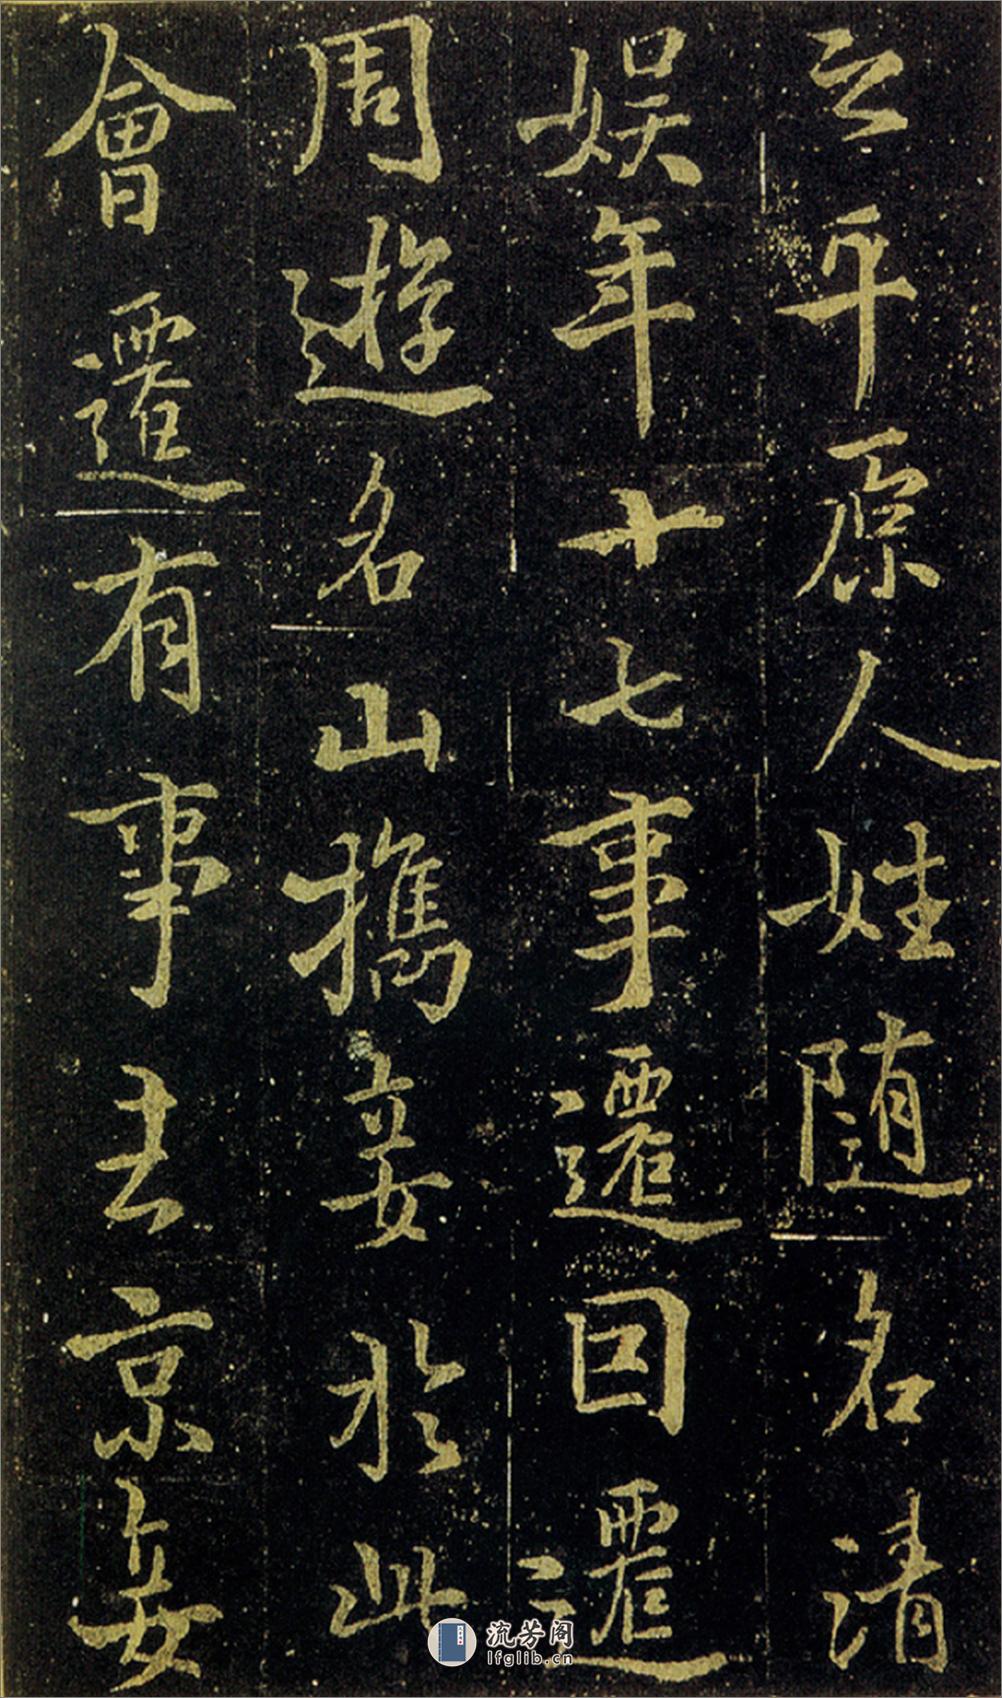 云平原人姓随名清
娱年十七事遷因遷
周遊名山攜妾於此
會遷有事去京妾
流芳阁
lfglib.cn